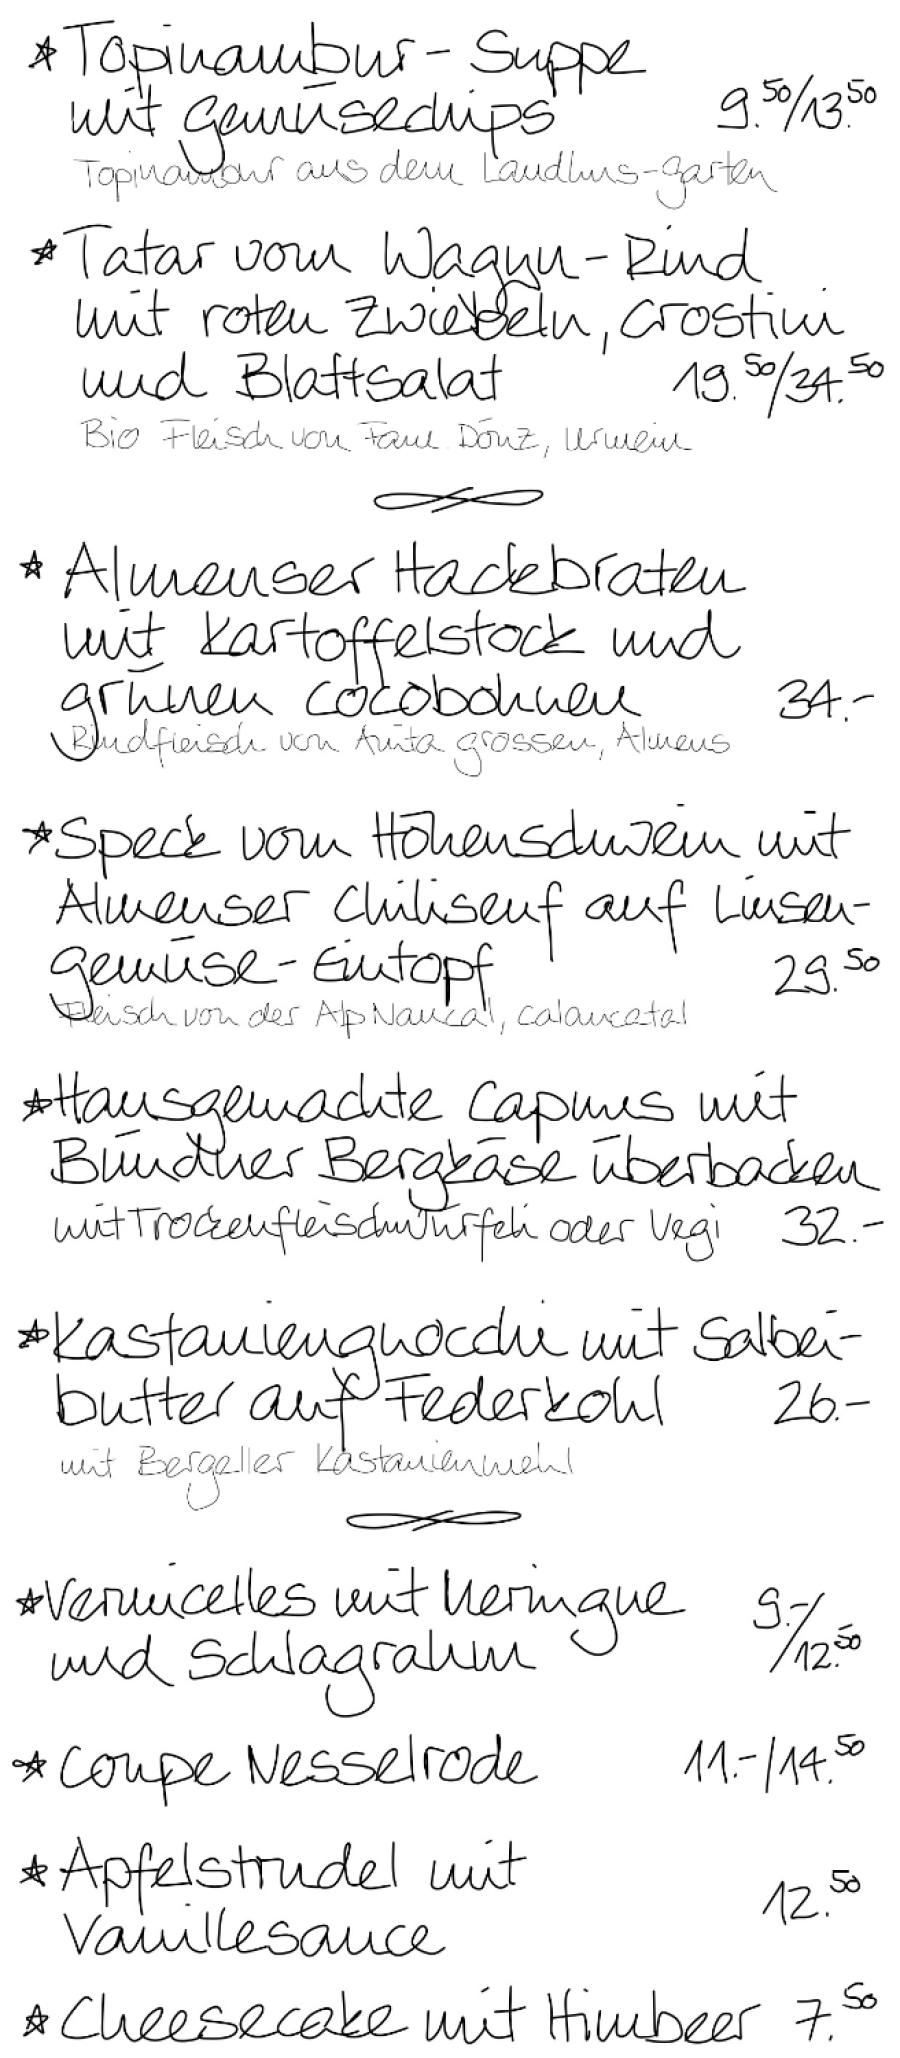 * Topinambur - Suppe
mit Gemüsechips 9.50/13.50
Topinambur aus dem Landhus-Garten
* Tatar vom Wagyu - Rind
mit roten Zwiebeln, Crostini
und Blattsalat 19.50/34.50
Bio Fleisch von Fam Dönz, Urmein
* Almenser Hackbraten
mit Kartoffelstock und
grünen Cocobohnen 34.-
Rindfleisch von Anita Grossen, Almens
* Speck vom Höhenschwein mit
Almenser Chilisenf auf Linsen-
gemüse - Eintopf 29.50
Fleisch von der Alp Naucal, Calancatal
* Hausgemachte Capuns mit
Bündner Bergkäse überbacken
mit Trockenfleischwürfeli oder Vegi 32.-
* Kastaniengnocchi mit Salbei-
butter auf Federkohl 26.-
mit Bergeller Kastanienmehl
* Vermicelles mit Meringue 9.-/
und Schlagrahm 12.50
* Coupe Nesselrode 11.-/14.50
* Apfelstrudel mit
Vanillesauce 12.50
* Cheesecake mit Himbeer 7.50